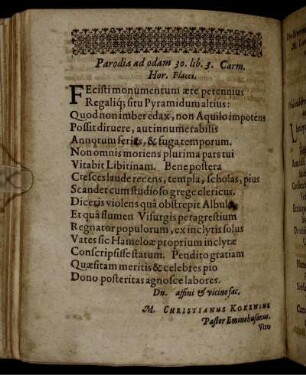 Parodia ad odam 30. lib. 3. Carm.
Hor. Flacci.
FEcisti monumentum ære perennius
Regaliq; situ Pyramidum altius:
Quod non imber edax, non Aquilo impotens
Possit diruere, aut innumerabilis
Annorum series, & fuga temporum.
Non omnis moriens plurima pars tui
Vitabit Libitinam. Bene postera
Cresces laude recens, templa, scholas, pius
Scander cum studioso grege clericus.
Diceris violens quà obstrepit Albula
Et quà flumen Visurgis peragrestium
Regnator populorum, ex inclytis solus
Vates sic Hameloæ proprium inclytæ
Conscripsisse statum. Pendito gratiam
Quæsitam meritis & celebres pio
Dono posteritas agnosce labores.
Dn. affini & vicino fac.
M. CHRISTIANUS KOKENIUS
Pastor